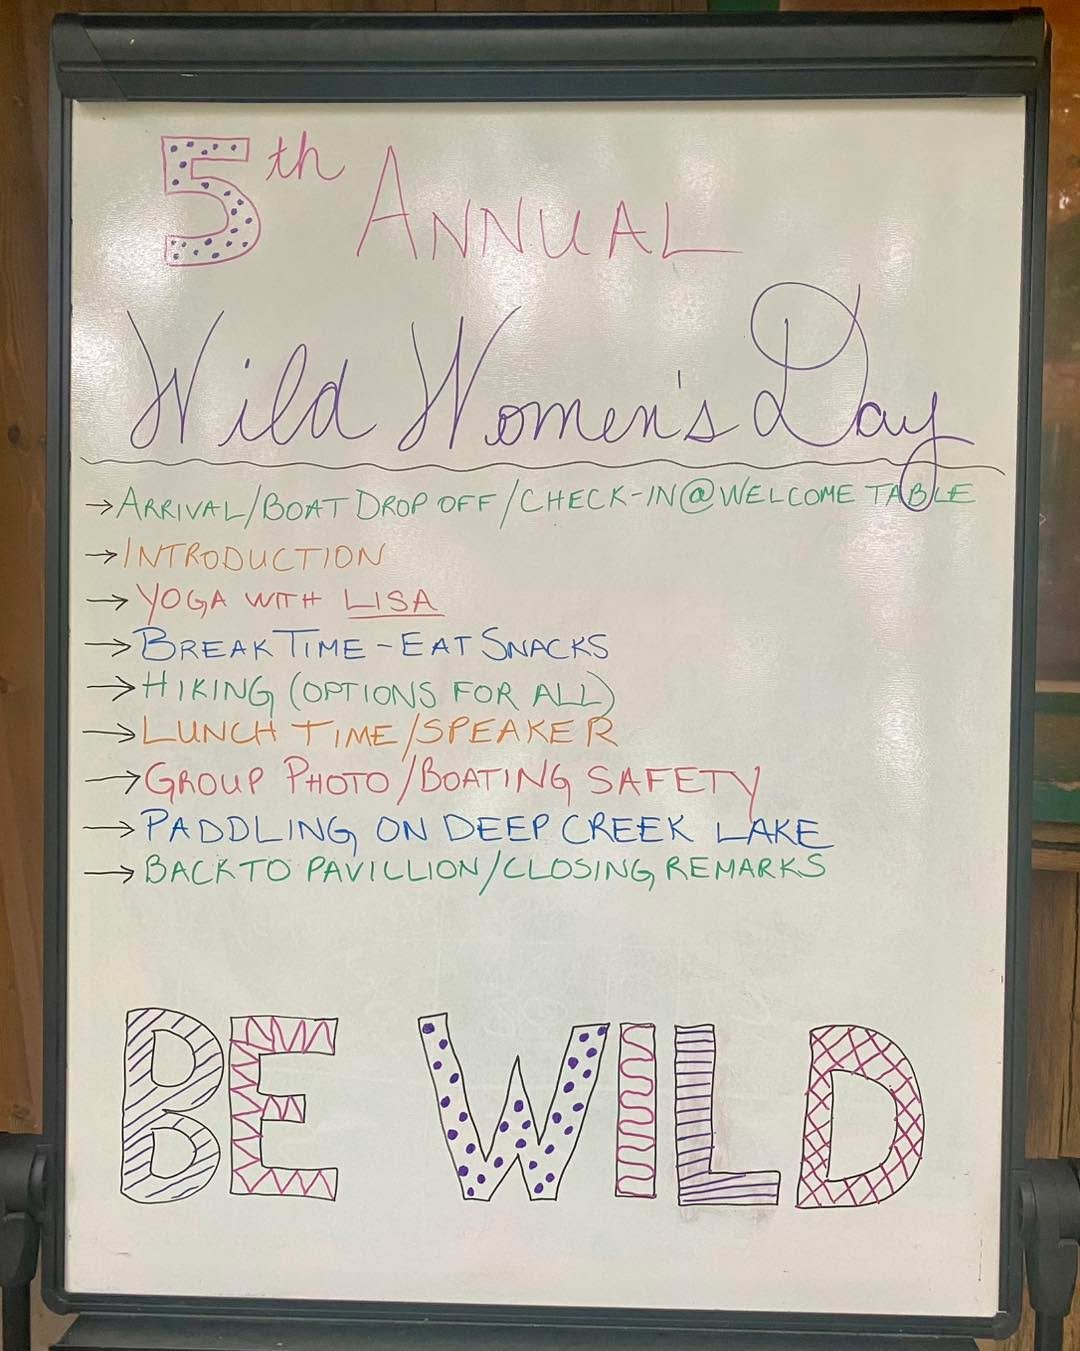 5th ANNUAL
Wild Women's Day
→ARRIVAL/BOAT DROP OFF/CHECK-IN@WELCOME TABLE
→INTRODUCTION
→YOGA WITH LISA
→BREAK TIME-EAT SNACKS
→HIKING (OPTIONS FOR ALL)
→LUNCH TIME/SPEAKER
→GROUP PHOTO/BOATING SAFETY
→PADDLING ON DEEP CREEK LAKE
→BACK TO PAVILLION/CLOSING REMARKS
BE WILD